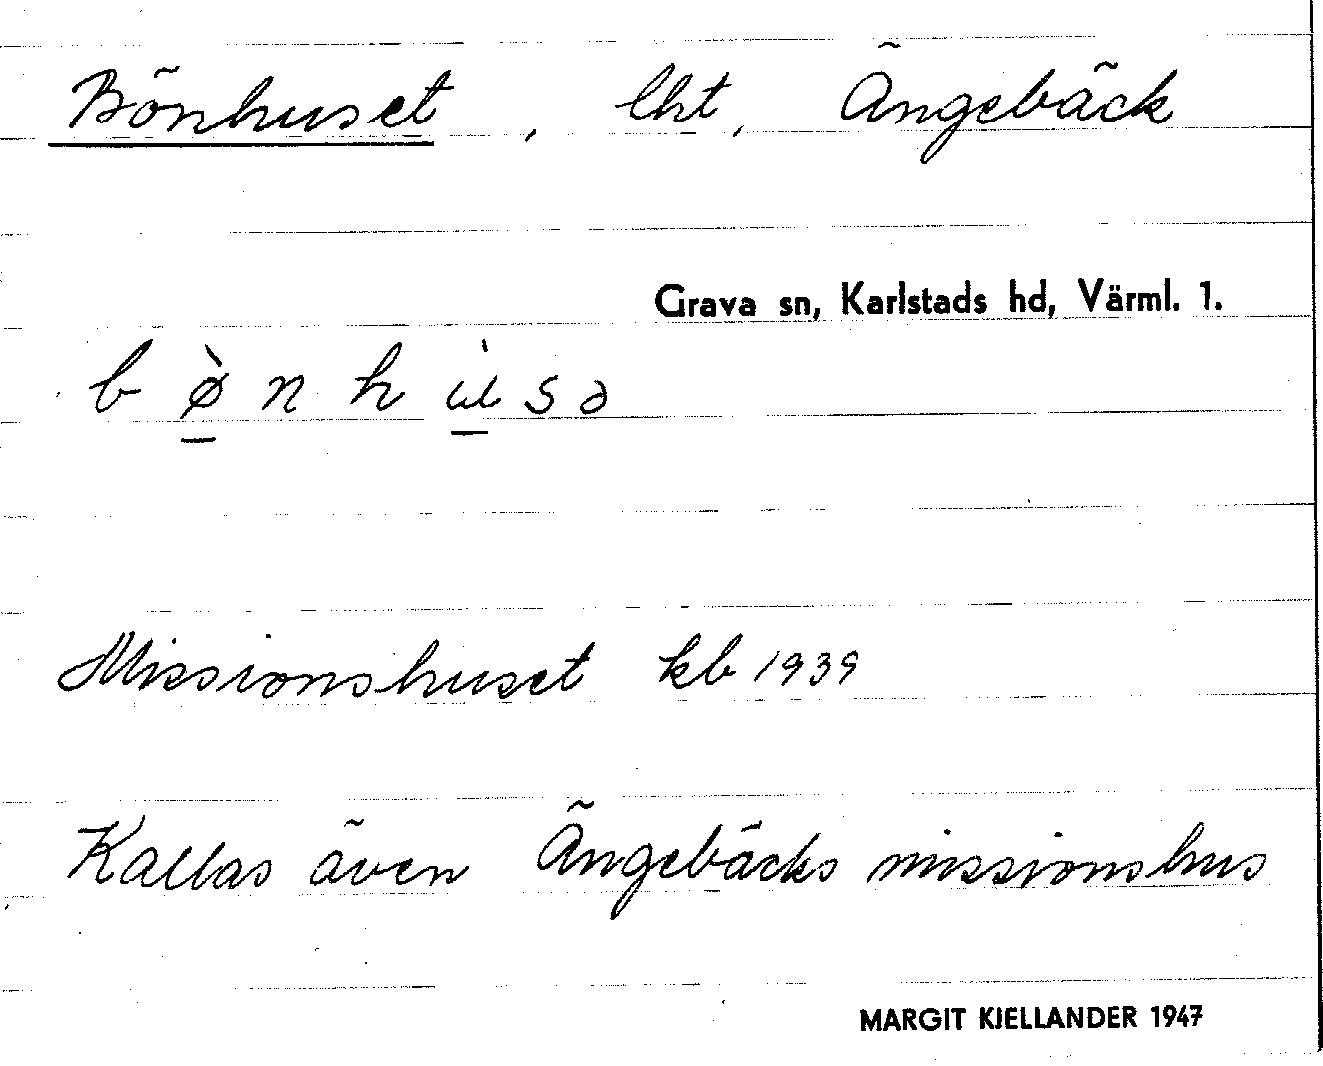 Bönhuset, lht, Ängebäck
Grava sn, Karlstads hd, Värml. 1.
b ø̠̀ n h ù̠ s ə
Missionshuset kb 1939
Kallas även Ängebäcks missionshus
MARGIT KJELLANDER 1947